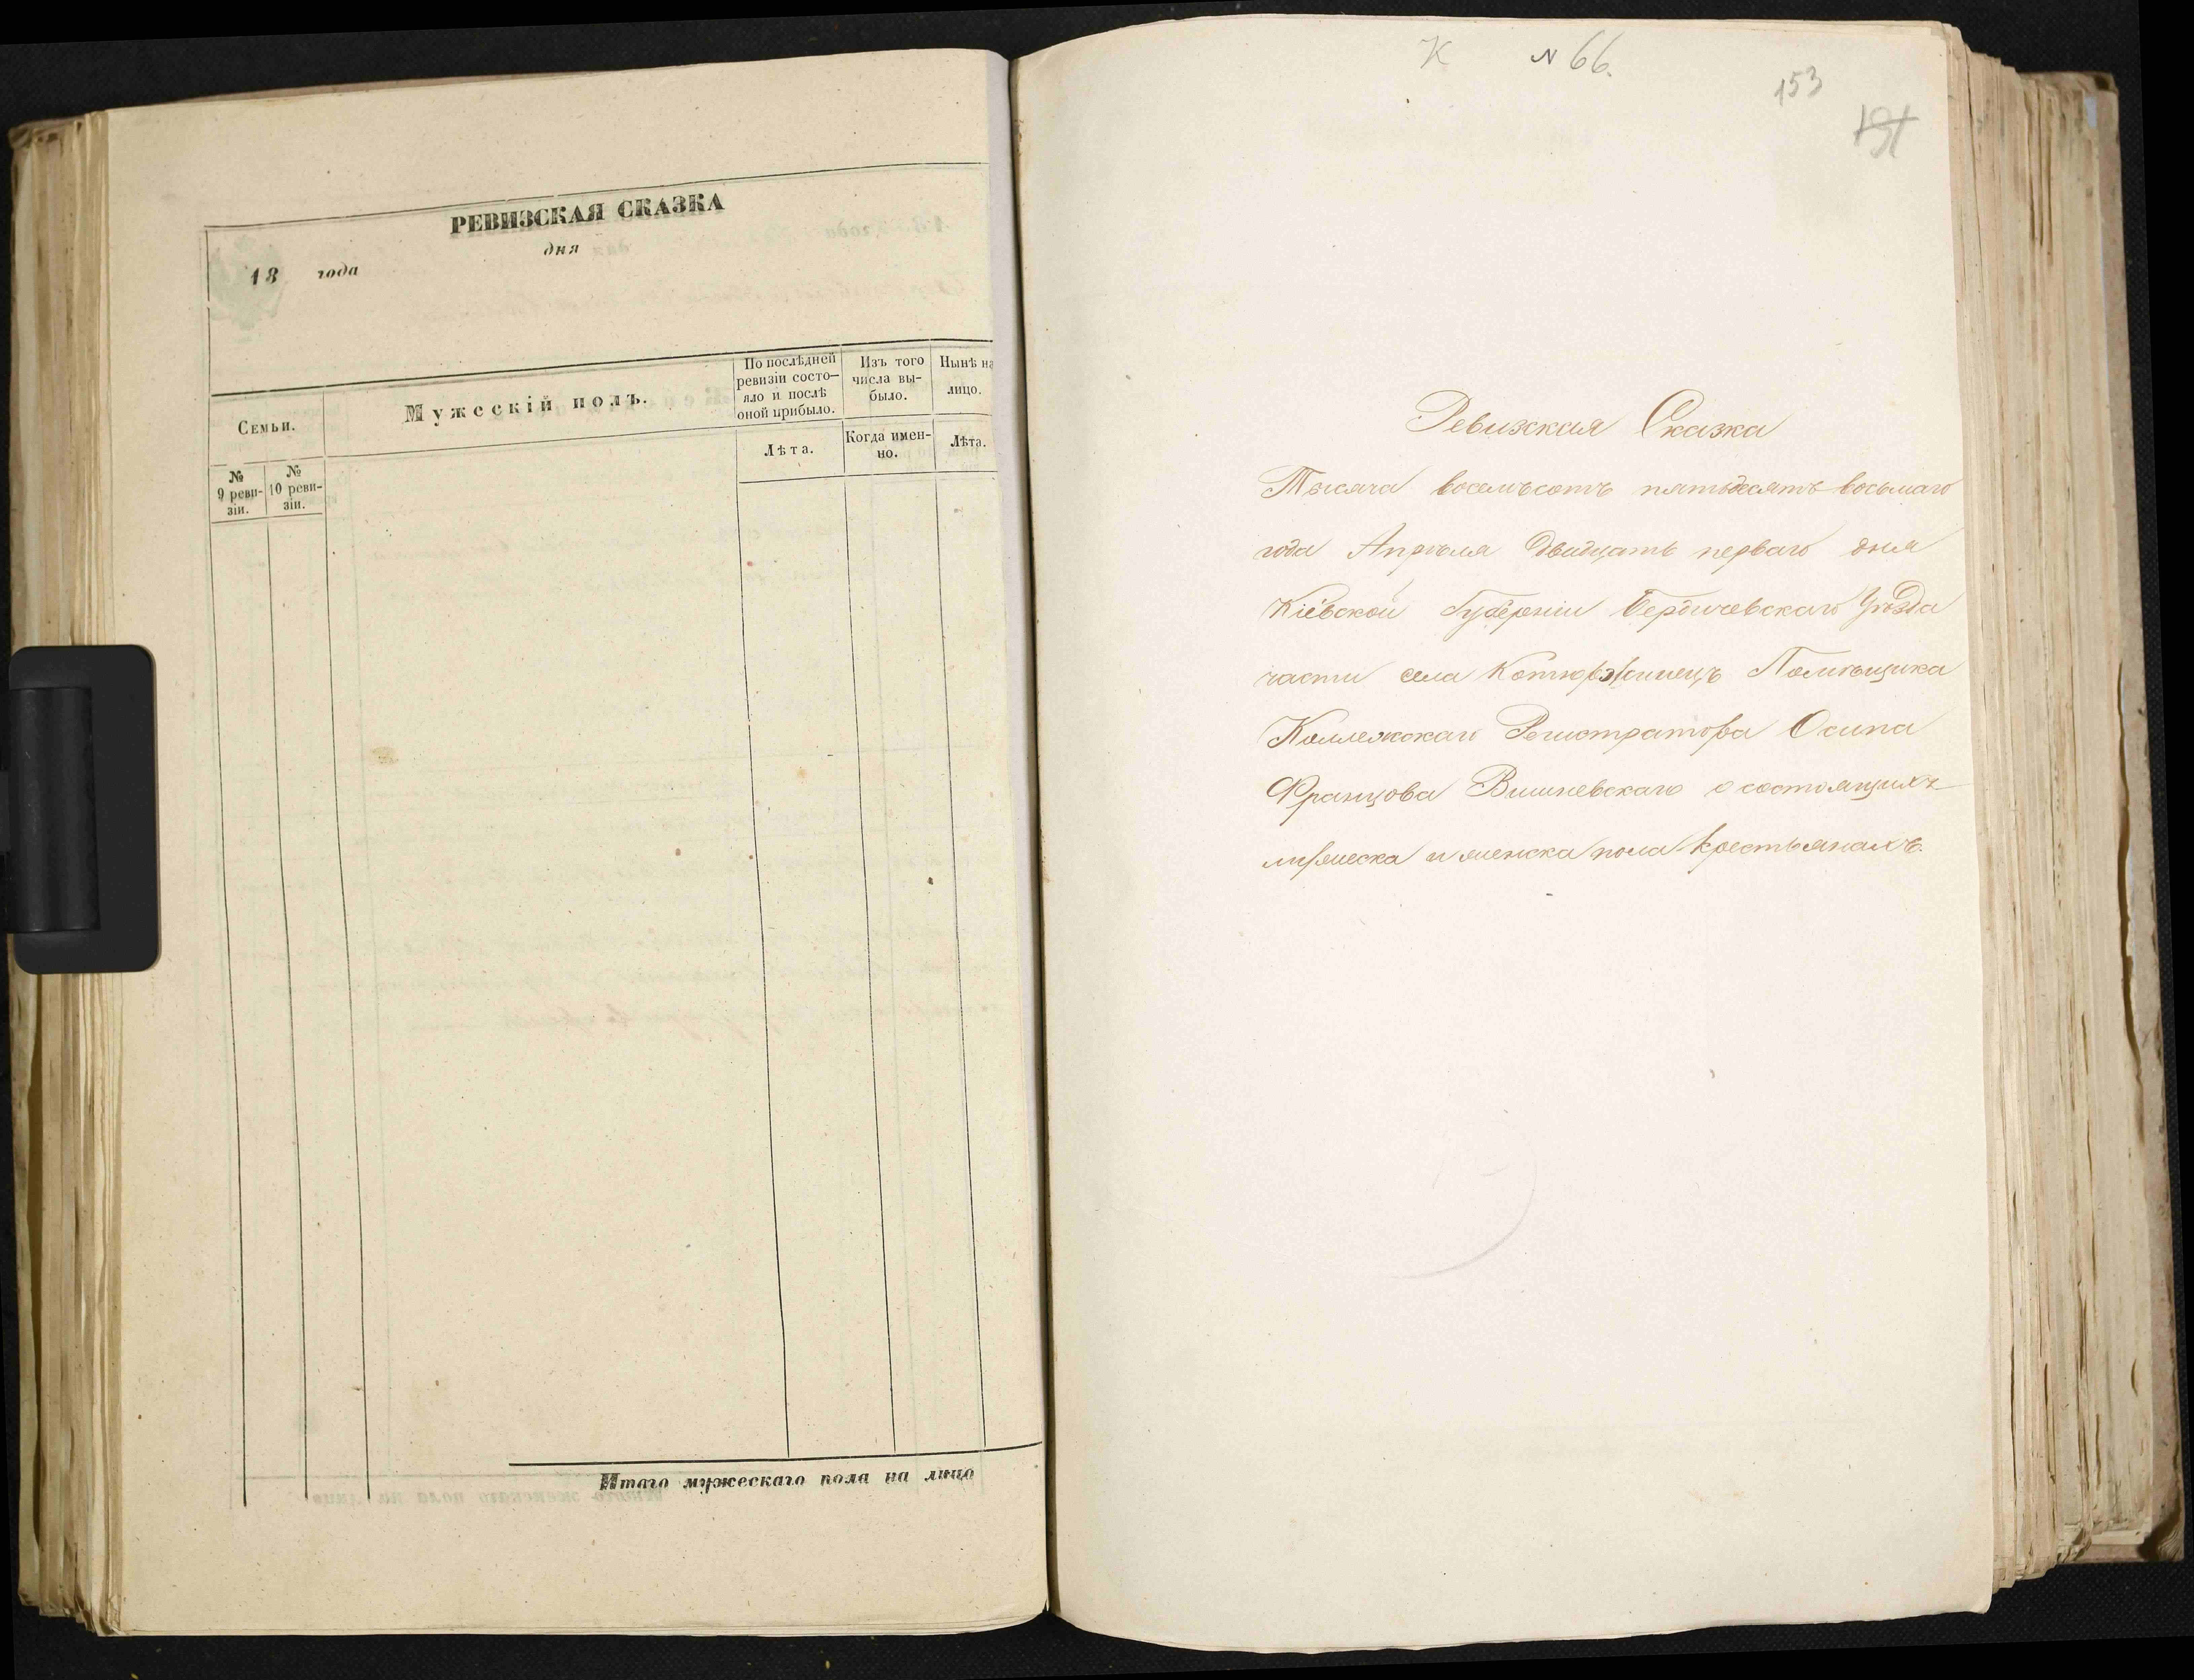 РЕВИЗСКАЯ СКАЗКА
дня
18 года
Семьи.
Мужескій полъ.
По послѣдней
ревизіи состо-
яло и послѣ
оной прибыло.
Изъ того
числа вы-
было.
Нынѣ на
лицо.
Лѣта.
Когда имен-
но.
Лѣта.
№
9 реви-
зіи.
№
10 реви-
зіи.
Итого мужескаго пола на лицо
К № 66.
153
Ревизская Сказка
Тысяча восемьсотъ пятьдесятъ восьмаго
года Апрѣля двадцать перваго дня
Кіевской Губерніи Бердичевскаго Уѣзда
части села Котюржинецъ Помѣщика
Коллежскаго Регистратора Осипа
Францова Вишневскаго о состоящихъ
мужеска и женска пола крестьянахъ.